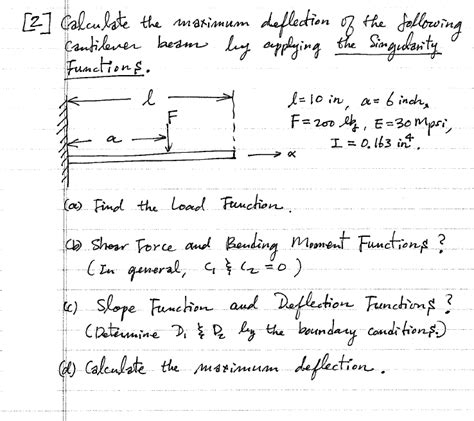 [2] Calculate the maximum deflection of the following
cantilever beam by applying the Singularity
Functions.
l
F
a
x
l=10 in, a=6 inch,
F=200 lbf, E=30 Mpsi,
I=0.163 in⁴.
(a) Find the Load Function.
(b) Shear Force and Bending Moment Functions?
(In general, C₁ & C₂ = 0)
(c) Slope Function and Deflection Functions?
(Determine D₁ & D₂ by the boundary conditions.)
(d) Calculate the maximum deflection.